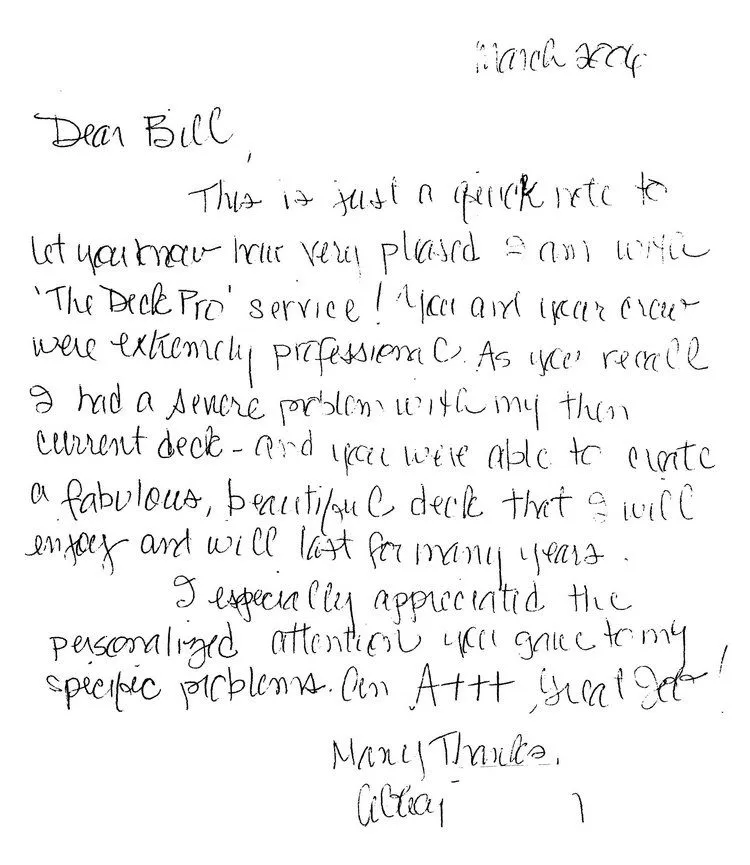 March 2004
Dear Bill,
This is just a quick note to
let you know how very pleased I am with
'The Deck Pro' service! You and your crew
were extremely professional. As you recall
I had a severe problem with my then
current deck - and you were able to create
a fabulous, beautiful deck that I will
enjoy and will last for many years.
I especially appreciated the
personalized attention you gave to my
specific problems. An A+++ great job!
Many Thanks,